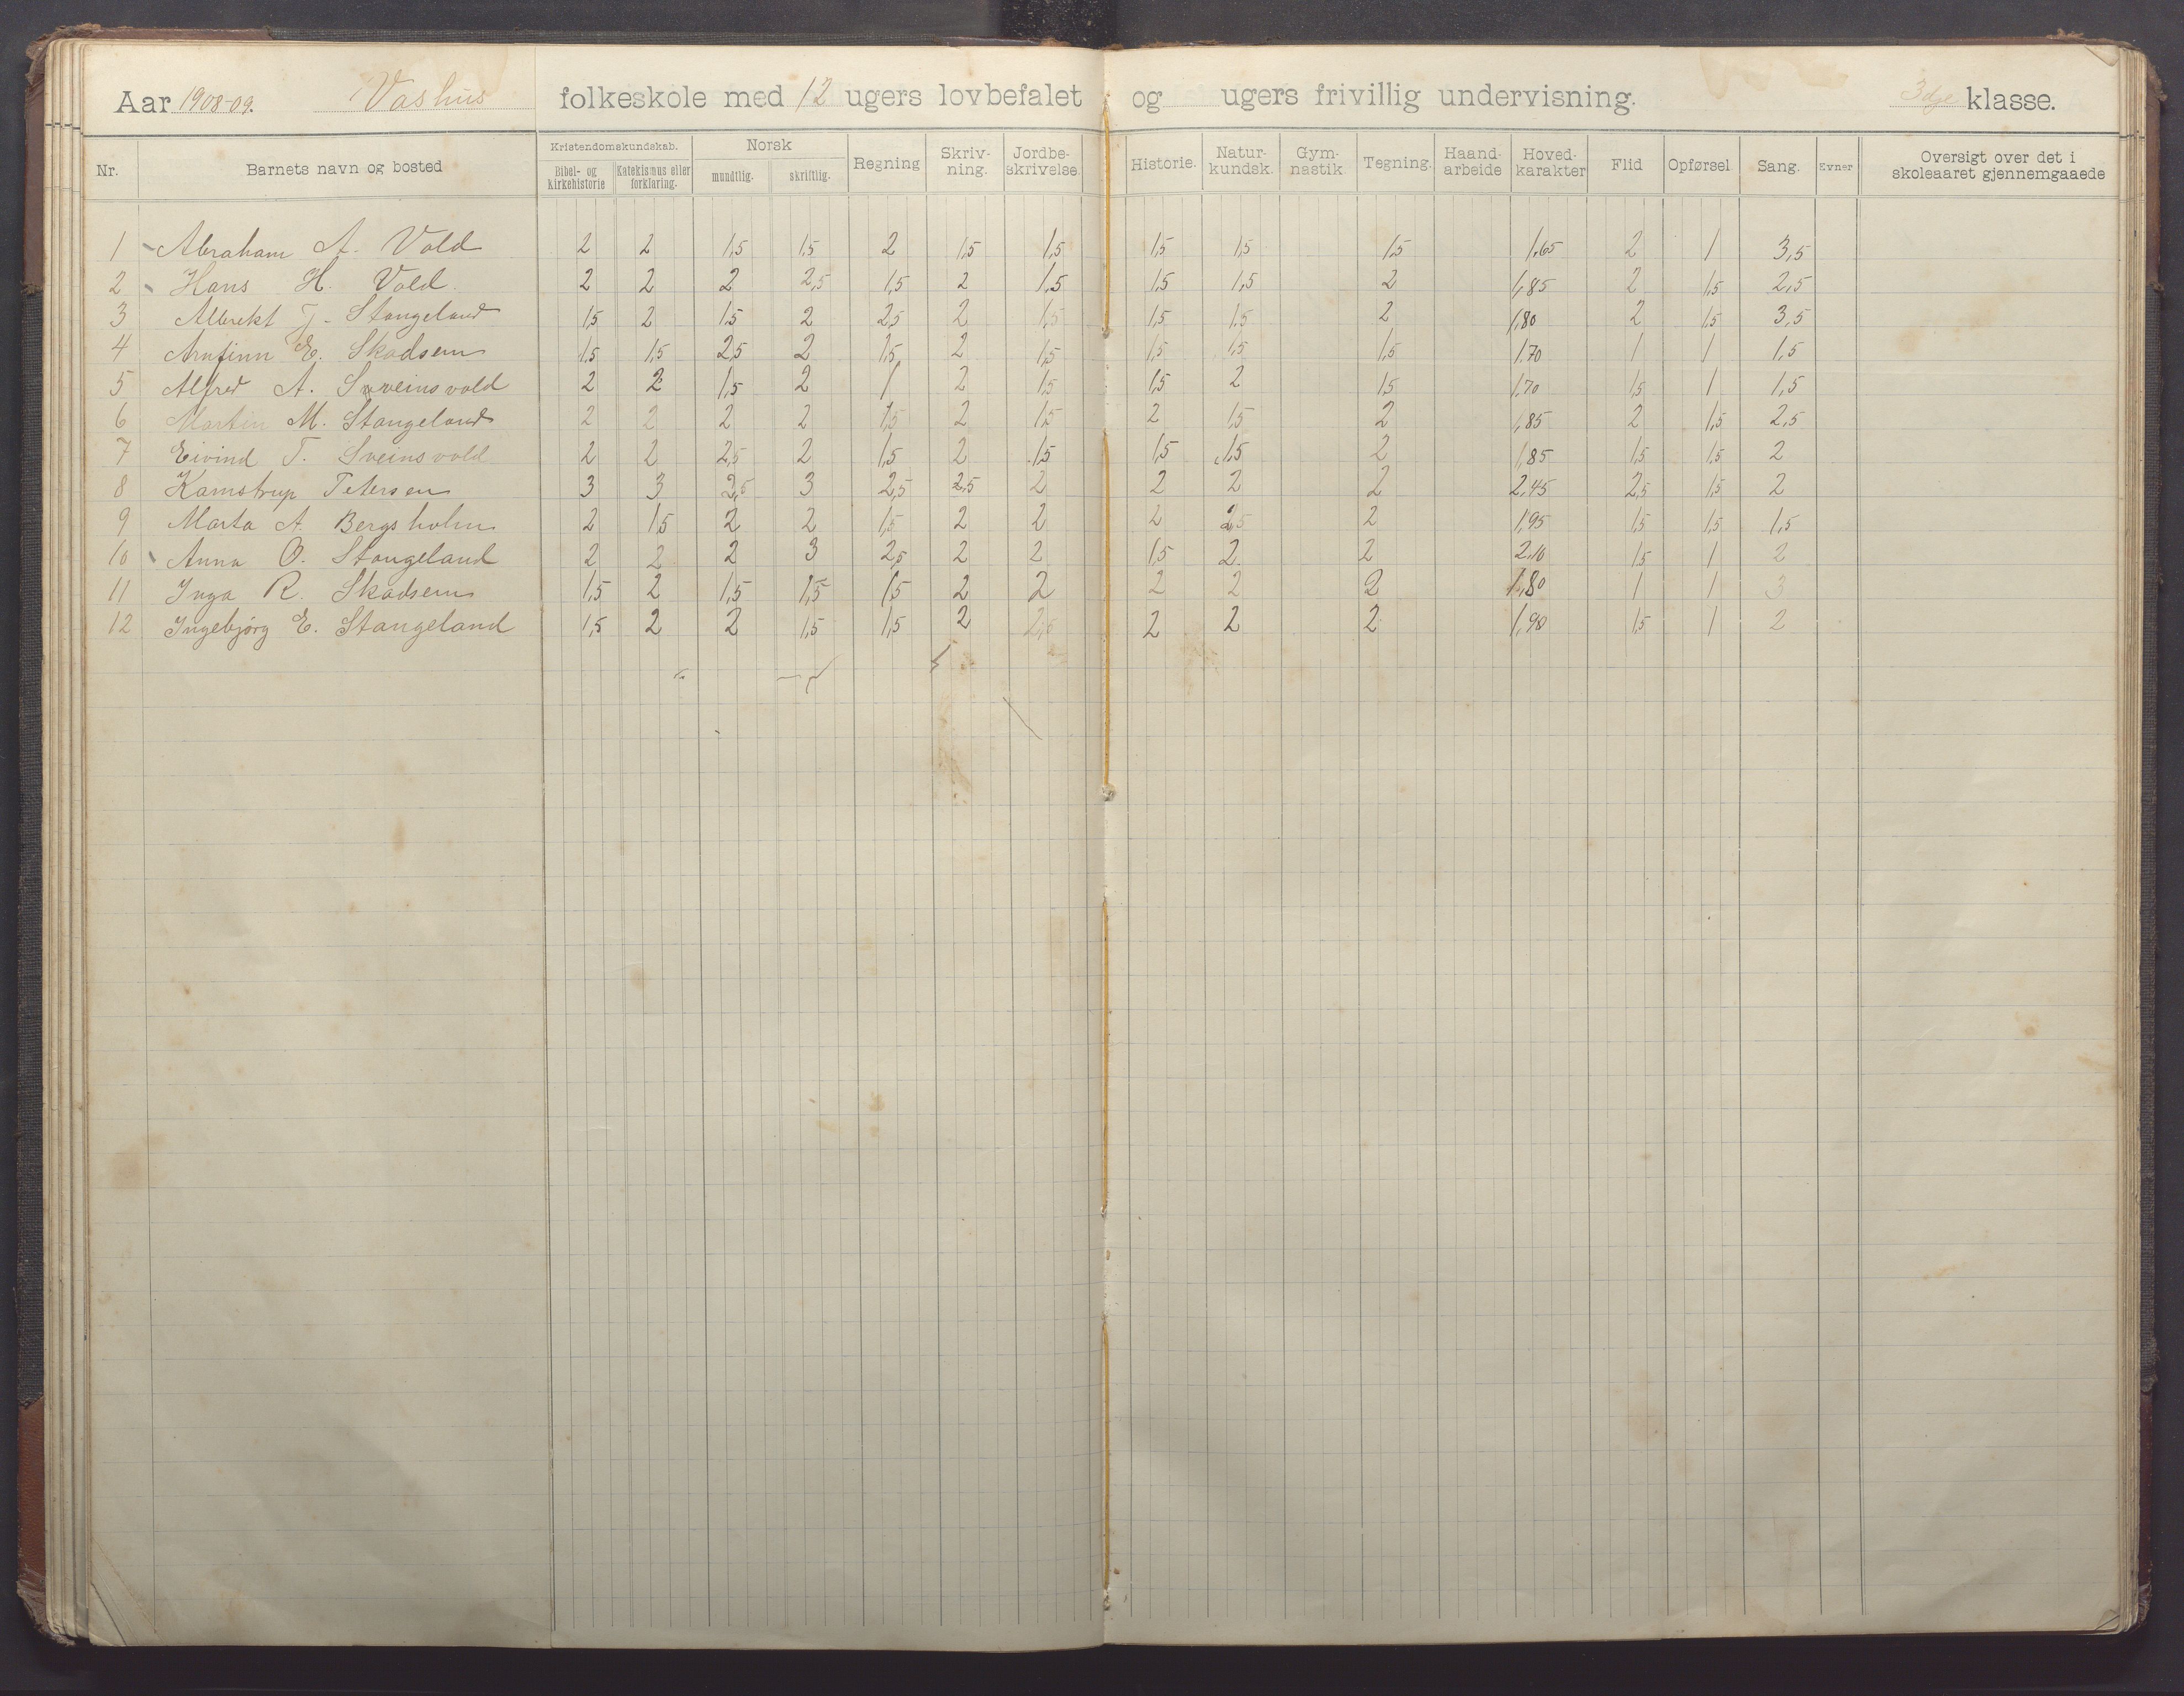 Aar 1908-09. Vashus folkeskole med 12 ugers lovbefalet og ugers frivillig undervisning. 3dje klasse.
Nr. Barnets navn og bosted Kristendomskundskab. Bibel- og kirkehistorie Katekismus eller forklaring. Norsk mundtlig. skriftlig. Regning Skriv-ning. Jordbe-skrivelse. Historie. Natur-kundsk. Gym-nastik Tegning. Haand-arbeide Hoved-karakter Flid Opførsel Sang. Evner Oversigt over det i skoleaaret gjennemgaaede
1 Abraham A. Vold 2 2 1,5 1,5 2 1,5 1,5 1,5 1,5 1,5 1,65 2 1 3,5
2 Hans H. Vold. 2 2 2 2,5 1,5 2 1,5 1,5 1,5 2 1,85 2 1,5 2,5
3 Albrekt T. Stangeland 1,5 2 1,5 2 2,5 2 1,5 1,5 1,5 2 1,80 2 1,5 3,5
4 Arnfinn E. Skadsem 1,5 1,5 2,5 2 1,5 2 1,5 1,5 1,5 1,5 1.70 1 1 1,5
5 Alfred A. Sveinsvold 2 2 1,5 2 1 2 1,5 1,5 2 1,5 1,70 1,5 1 1,5
6 Martin M. Stangeland 2 2 2 2 1,5 2 1,5 2 1,5 2 1,85 2 1,5 2,5
7 Eivind T. Sveinsvold 2 2 2,5 2 1,5 2 1,5 1,5 1,5 2 1,85 1,5 1,5 2
8 Kamstrup Petersen 3 3 2,5 3 2,5 2,5 2 2 2 2 2,45 2,5 1,5 2
9 Marta A. Bergsholm 2 1,5 2 2 1,5 2 2 2 2,5 2 1,95 1,5 1,5 1,5
10 Anna O. Stangeland 2 2 2 3 2,5 2 2 1,5 2 2 2,10 1,5 1 2
11 Inga R. Skadsem 1,5 2 1,5 1,5 1,5 2 2 2 2 2 1,80 1 1 3
12 Ingebjørg E. Stangeland 1,5 2 2 1,5 1,5 2 2,5 2 2 2 1,90 1,5 1 2